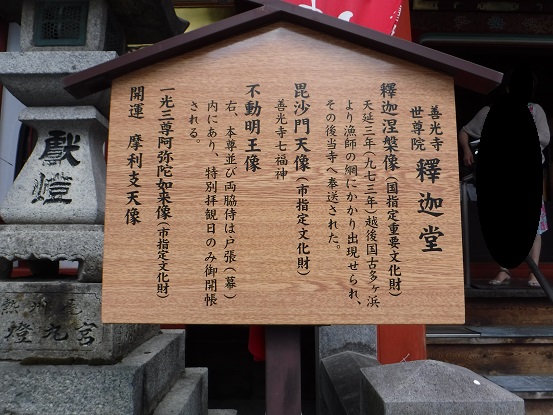 善光寺
世尊院
釋迦堂
釋迦涅槃像(国指定重要文化財)
天延三年(九七三年)越後国古多ヶ浜
より漁師の網にかかり出現せられ、
その後当寺へ奉送された。
毘沙門天像(市指定文化財)
善光寺七福神
不動明王像
右、本尊並び両脇侍は戸張(幕)
内にあり、特別拝観日のみ御開帳
される。
一光三尊阿弥陀如来像(市指定文化財)
開運 摩利支天像
獻燈